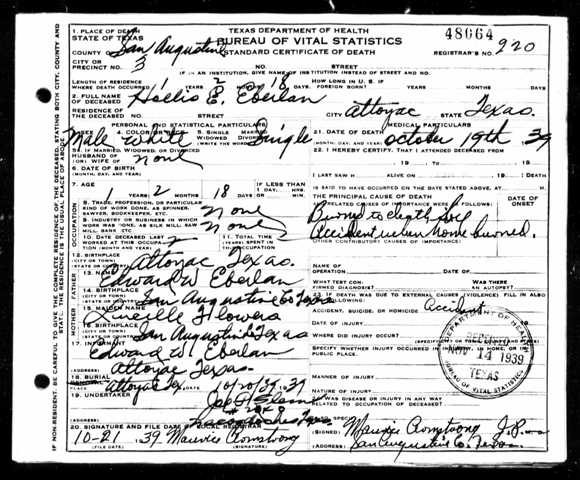 TEXAS DEPARTMENT OF HEALTH
BUREAU OF VITAL STATISTICS
STANDARD CERTIFICATE OF DEATH
48064
REGISTRAR'S NO. 920
1. PLACE OF DEATH
STATE OF TEXAS
COUNTY OF San Augustine
CITY OR
PRECINCT NO. 3
NO. STREET
IF IN AN INSTITUTION, GIVE NAME OF INSTITUTION INSTEAD OF STREET AND NO.
LENGTH OF RESIDENCE
WHERE DEATH OCCURRED 1 YEARS 2 MONTHS 18 DAYS
HOW LONG IN U. S. IF
FOREIGN BORN? YEARS MONTHS DAYS
2. FULL NAME
OF DECEASED Hollis E. Eberlan
RESIDENCE OF
THE DECEASED STREET NO. CITY Attoyac STATE Texas.
PERSONAL AND STATISTICAL PARTICULARS
3. SEX Male
4. COLOR OR RACE White
5. SINGLE MARRIED
WIDOWED DIVORCED
(WRITE THE WORD) Single
IF MARRIED, WIDOWED OR DIVORCED
HUSBAND OF
(OR) WIFE OF None
6. DATE OF BIRTH
(MONTH, DAY, AND YEAR)
7. AGE
1 YEARS 2 MONTHS 18 DAYS
IF LESS THAN
1 DAY
HRS. MIN.
8. TRADE, PROFESSION, OR PARTICULAR
KIND OF WORK DONE, AS SPINNER,
SAWYER, BOOKKEEPER, ETC. None
9. INDUSTRY OR BUSINESS IN WHICH
WORK WAS DONE, AS SILK MILL, SAW
MILL, BANK, ETC. None
10. DATE DECEASED LAST
WORKED AT THIS OCCUPA-
TION (MONTH AND YEAR)
11. TOTAL TIME (YEARS)
SPENT IN THIS
OCCUPATION
12. BIRTHPLACE
(CITY OR TOWN)
(STATE OR COUNTRY) Attoyac Texas.
13. NAME Edward W Eberlan
14. BIRTHPLACE
(CITY OR TOWN)
(STATE OR COUNTRY) San Augustine Co Texas
15. MAIDEN NAME Lucille Flowers
16. BIRTHPLACE
(CITY OR TOWN)
(STATE OR COUNTRY) San Augustine Texas
17. INFORMANT Edward W. Eberlan
ADDRESS Attoyac Texas.
18. BURIAL
Attoyac Tex. 10/20/39 1939
19. UNDERTAKER
(ADDRESS)
20. SIGNATURE AND FILE DATE OF LOCAL REGISTRAR
10-21 1939 Maurice Armstrong
(FILE DATE) (SIGNATURE)
MEDICAL PARTICULARS
21. DATE OF DEATH
(MONTH, DAY AND YEAR) October 19th. 39
22. I HEREBY CERTIFY, THAT I ATTENDED DECEASED FROM
19 TO 19
I LAST SAW H ALIVE ON 19 DEATH
IS SAID TO HAVE OCCURRED ON THE DATE STATED ABOVE, AT M.
THE PRINCIPAL CAUSE OF DEATH
AND RELATED CAUSES OF IMPORTANCE WERE AS FOLLOWS:
DATE OF
ONSET
Burned to death
Accident when home burned.
OTHER CONTRIBUTORY CAUSES OF IMPORTANCE:
NAME OF
OPERATION DATE OF
WHAT TEST CON-
FIRMED DIAGNOSIS? WAS THERE AN
AUTOPSY?
23. IF DEATH WAS DUE TO EXTERNAL CAUSES (VIOLENCE) FILL IN ALSO
THE FOLLOWING:
ACCIDENT, SUICIDE, OR HOMICIDE Accident
DATE OF INJURY
WHERE DID INJURY OCCUR?
SPECIFY WHETHER INJURY OCCURRED IN INDUSTRY, IN HOME, OR IN
PUBLIC PLACE.
MANNER OF INJURY
NATURE OF INJURY
24. WAS DISEASE OR INJURY IN ANY WAY
RELATED TO OCCUPATION OF DECEASED?
IF SO, SPECIFY
(SIGNED) Maurice Armstrong J.P.
(ADDRESS) San Augustine Co. Texas.
DEPARTMENT OF HEALTH
NOV 14 1939
TEXAS
BUREAU OF VITAL STATISTICS